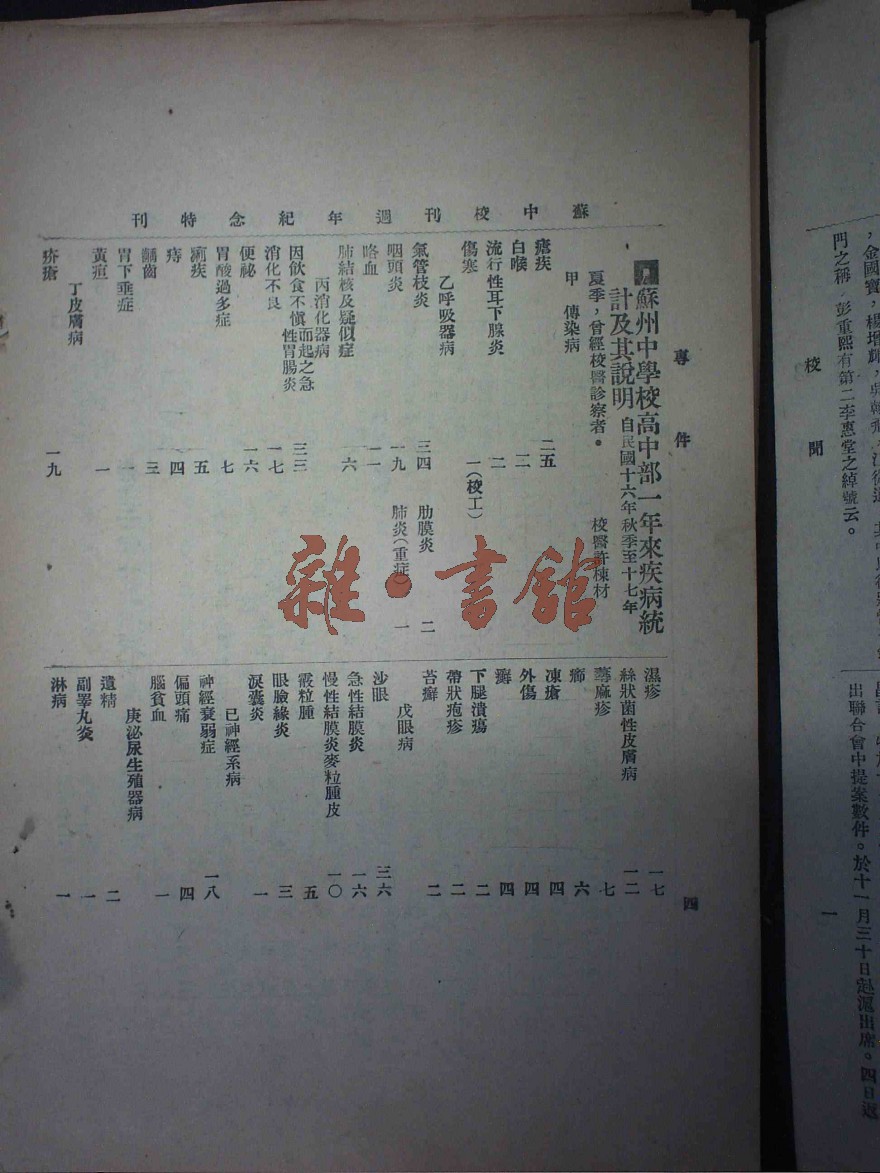 蘇中校刊週年紀念特刊
專件
四
蘇州中學校高中部一年來疾病統
計及其說明 自民國十六年秋季至十七年
夏季，曾經校醫診察者。 校醫許棟材
甲 傳染病
瘧疾 二五
白喉 二
流行性耳下腺炎 二
傷寒 一（校工）
乙呼吸器病
氣管枝炎 三四 肋膜炎 二
咽頭炎 一九 肺炎（重症） 一
咯血 一一
肺結核及疑似症 六
丙消化器病
因飲食不慎而起之急性胃腸炎 三三
消化不良 一七
便祕 一六
胃酸過多症 七
痢疾 五
痔 四
齲齒 三
胃下垂症 一
黃疸 一
丁皮膚病
疥瘡 一九
濕疹 一七
絲狀菌性皮膚病 一二
蕁麻疹 七
癤 六
凍瘡 四
外傷 四
癬 四
下腿潰瘍 二
帶狀疱疹 二
苔癬 二
戊眼病
沙眼 三六
急性結膜炎 一六
慢性結膜炎麥粒腫皮 一〇
霰粒腫 五
眼瞼緣炎 三
淚囊炎 一
已神經系病
神經衰弱症 一八
偏頭痛 四
腦貧血 一
庚泌尿生殖器病
遺精 二
副睪丸炎 一
淋病 一
校聞
一
，金國寶，楊增
門之稱，彭重熙有第二李惠堂之綽號云。
出聯合會中提案數件。於十一月三十日起滬出席。四日返
雜·書館